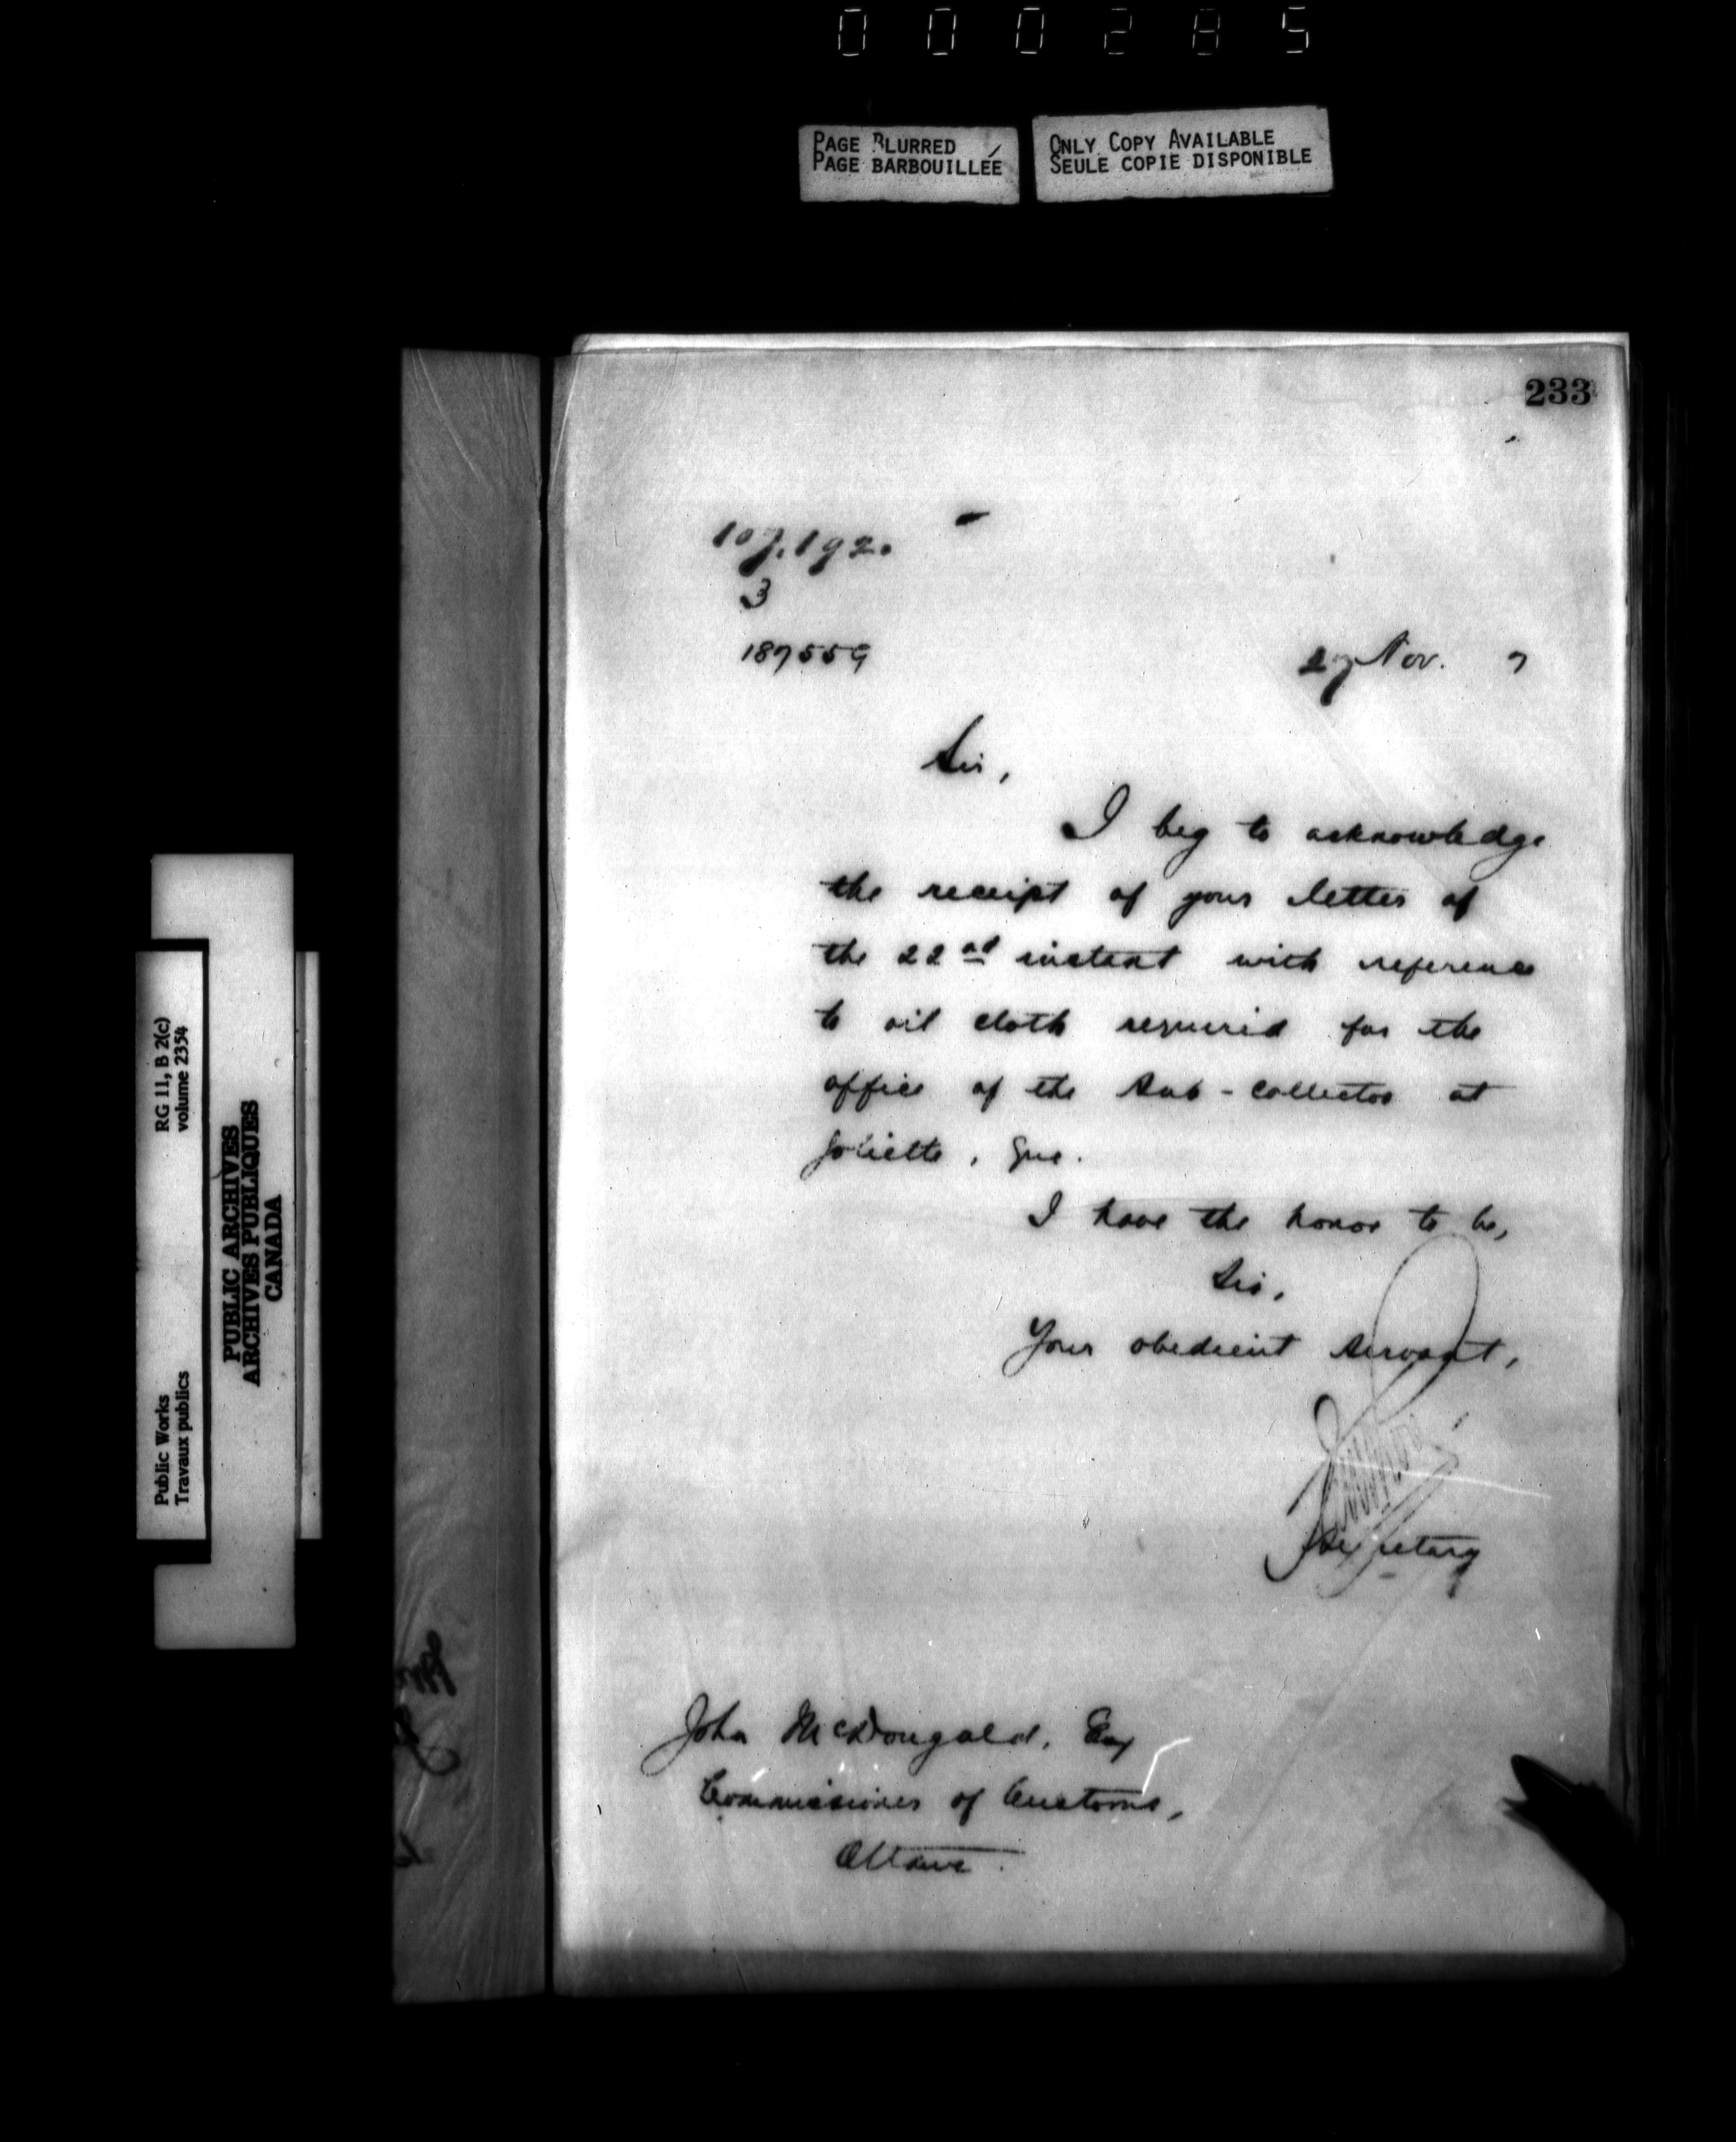 000285
PAGE BLURRED
PAGE BARBOUILLÉE
ONLY COPY AVAILABLE
SEULE COPIE DISPONIBLE
233
107.192.
3
187559
27 Nov. 7
Sir,
I beg to acknowledge
the receipt of your letter of
the 22nd instant with reference
to oil cloth required for the
office of the Sub-Collector at
Joliette, Que.
I have the honor to be,
Sir,
Your obedient servant,
Secretary
John McDougald, Esq
Commissioner of Customs,
Ottawa.
RG 11, B 2(c)
volume 2354
Public Works
Travaux publics
PUBLIC ARCHIVES
ARCHIVES PUBLIQUES
CANADA